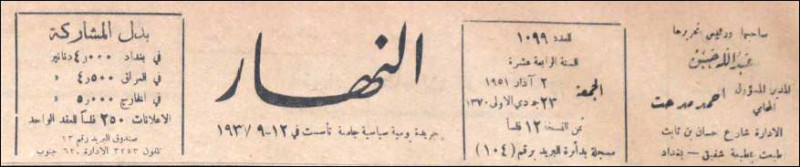 صاحبها ورئيس تحريرها
عبدالله حسن
المدير المسؤول
المحامي
احمد مدحت
الادارة شارع حسان بن ثابت
طبعت بمطبعة شفيق - بغداد
العدد ١٠٩٩
السنة الرابعة عشرة
الجمعة
٢ آذار ١٩٥١
٢٣ جمادي الاولى ١٣٧٠
ثمن النسخة ١٢ فلساً
مسجلة بدأرة البريد برقم (١٠٤)
النهار
جريدة يومية سياسية جامعة تأسست في ١٢-٩-١٩٣٧
بدل المشاركة
في بغداد ٤٫٠٠٠ دنانير
في العراق ٤٫٥٠٠ »
في الخارج ٥٫٠٠٠ »
الاعلانات ٢٥٠ فلساً للعقد الواحد
صندوق البريد رقم ١٣
تلفون ٣٢٥٣ الادارة ٦٢٠ جنوب